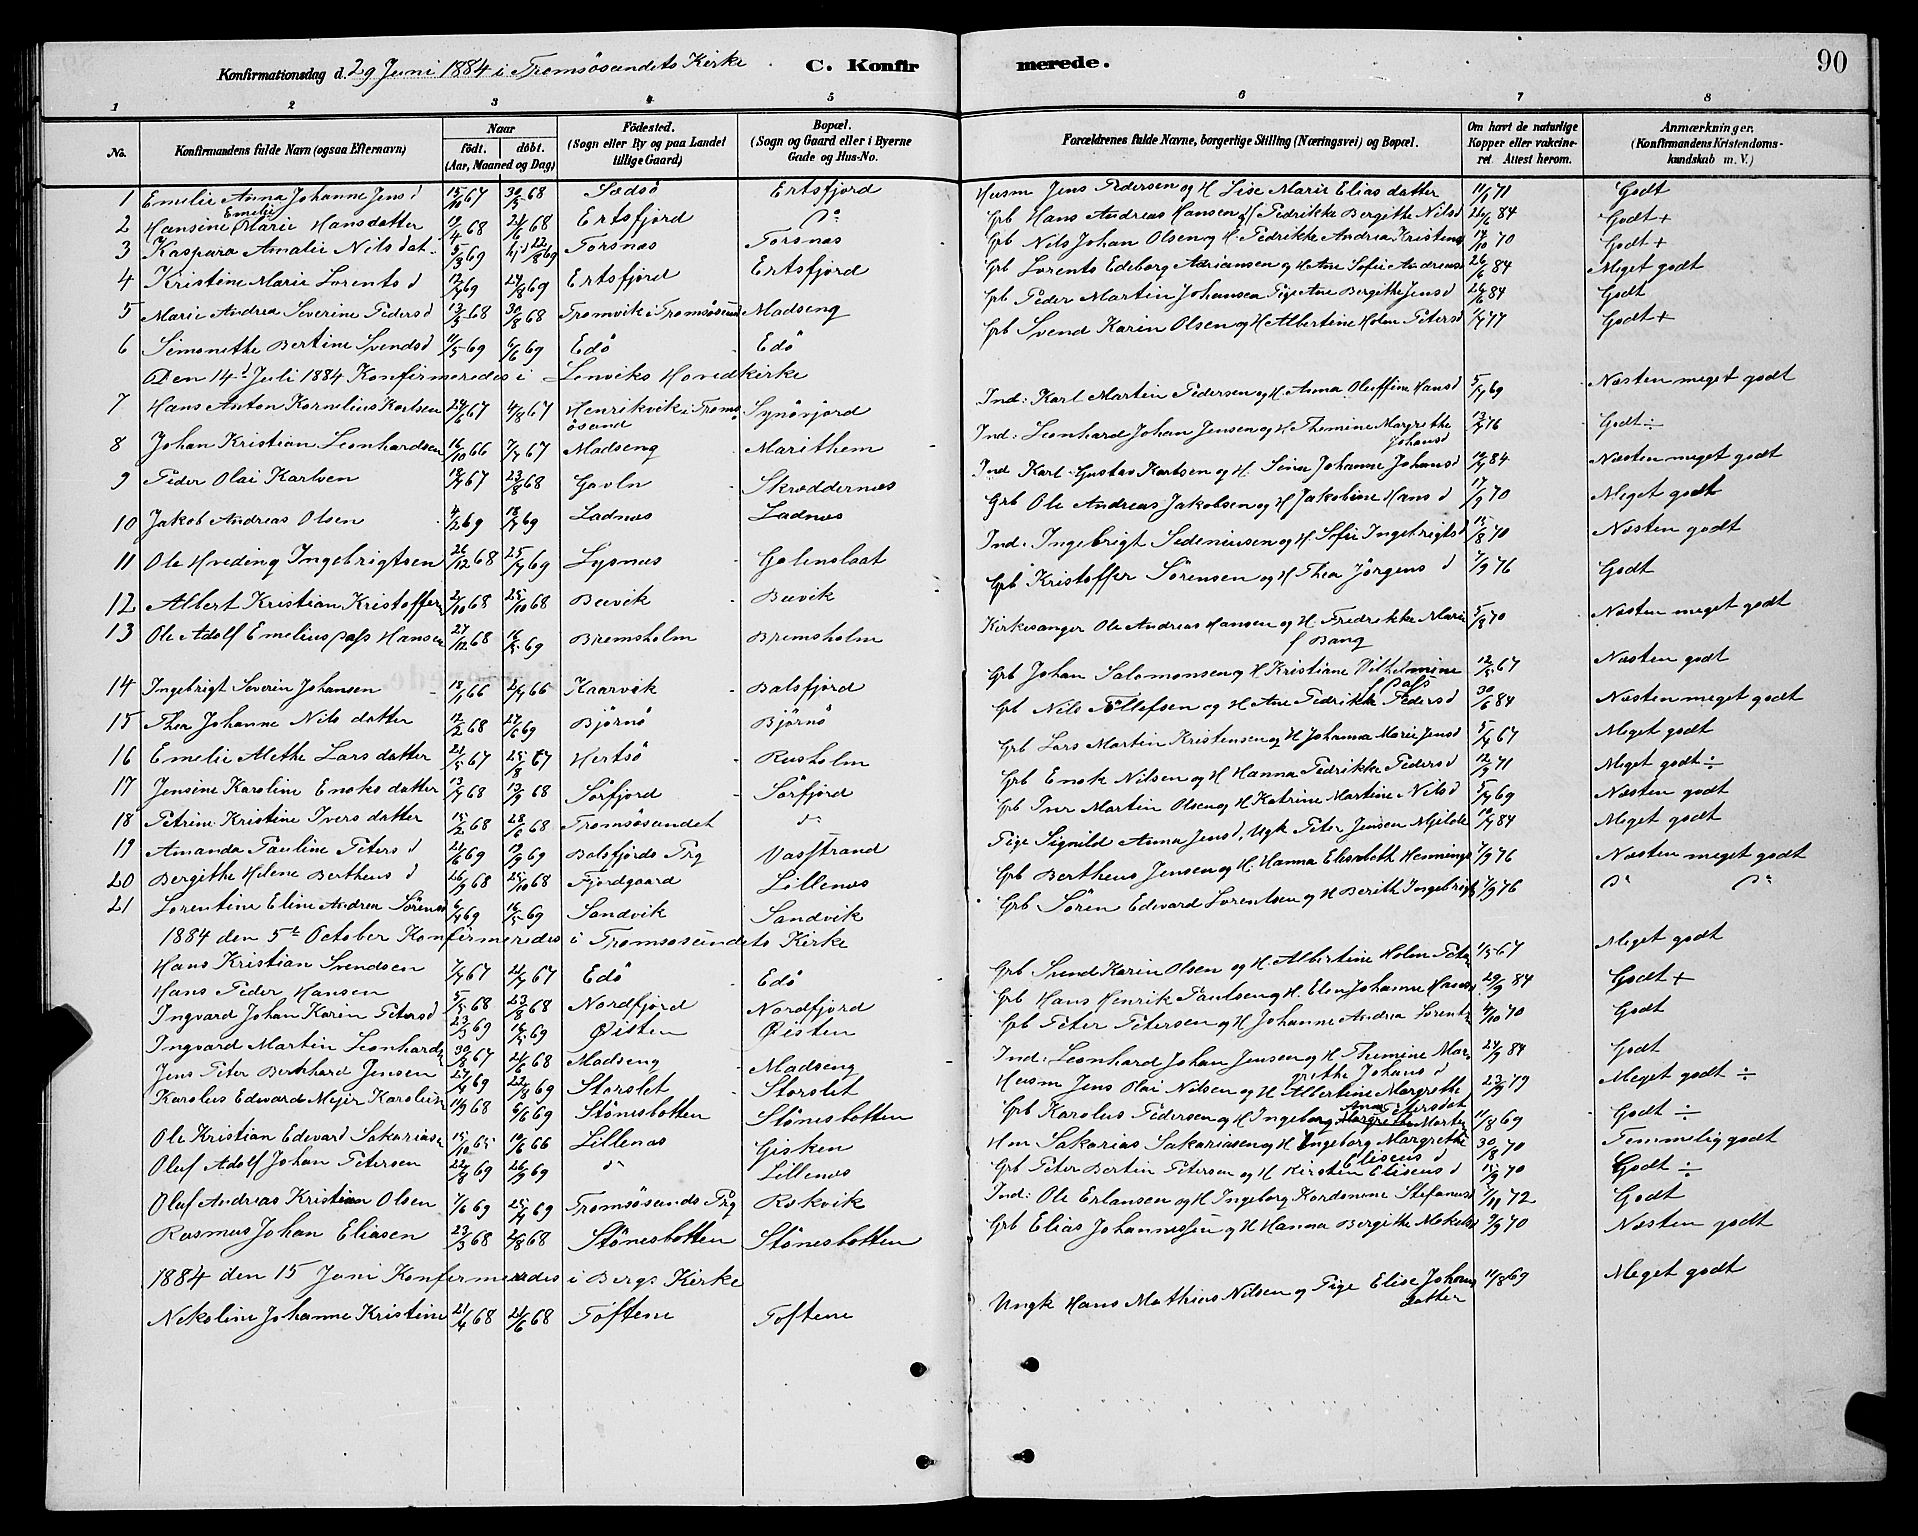 Konfirmationsdag d. 29 Juni 1884 i Tromsösundets Kirke. C. Konfir merede. 90
1 2 3 4 5 6 7 8
No. Konfirmandens fulde Navn (ogsaa Efternavn) Naar födt. döbt. (Aar, Maaned og Dag) Födested. (Sogn eller By og paa Landet tillige Gaard) Bopæl. (Sogn og Gaard eller i Byerne Gade og Hus-No. Forældrenes fulde Navne, borgerlige Stilling (Næringsvei) og Bopæl. Om havt de naturlige Kopper eller vakcineret. Attest herom. Anmærkninger. (Konfirmandens Kristendomskundskab m. V.)
1 Emelie Anna Johanne Jens d 15/10 67 30/5 68 Sædsö Ertsfjord Husm Jens Pedersen og H Lise Marie Elias datter 11/9 71 Godt
2 Hansine Emelie Marie Hansdatter 19/4 68 24/6 68 Ertsfjord Do Grb Hans Andreas Hansen og H Pedrikke Bergithe Nilsd 26/6 84 Godt +
3 Kaspara Amalie Nils dat 5/3 69 Torsnæs Torsnæs Grb Nils Johan Olsen og H. Pedrikke Andrea Kristens 17/10 70 Godt +
4 Kristine Marie Lorents d 12/4 69 29/8 69 Ertsfjord Ertsfjord Grb Lorents Edeborg Adriansen og H Ane Sofie Andreas 26/6 84 Meget godt
5 Marie Andrea Severine Peders d 13/3 68 30/8 68 Tromvik i Tromsösund Madseng Grb Peder Martin Johansen Pige Ane Bergithe Jens d 26/6 84 Godt
6 Simonethe Bertine Svends d 9/5 69 6/6 69 Edö Edö Grb Svend Karin Olsen og H Albertine Holm Petersd 1/7 77 Godt +
Den 14d Juli 1884 Konfirmeredes i Lenviks Hovedkirke
7 Hans Anton Kornelius Karlsen 24/6 67 4/8 67 Henrikvik i Tromsösund Synövjord Ind: Karl Martin Pedersen og H. Anna Oluffine Hans d 5/7 69 Næsten meget godt
8 Johan Kristian Leonhardsen 16/10 66 7/7 67 Madseng Marithem Ind: Leonhard Johan Jensen og H Themine Margrethe Johansd 13/7 76 Godt ÷
9 Peder Olai Karlsen 18/4 67 23/8 68 Gavln Skræddernæs Ind Karl Gustav Karlsen og H. Sina Johanne Johansd 10/7 84 Næsten meget godt
10 Jakob Andreas Olsen 4/2 69 18/7 69 Ladnæs Ladnæs Grb Ole Andreas Jakobsen og H Jakobine Hans d 17/9 70 Meget godt
11 Ole Hveding Ingebrigtsen 26/12 68 25/7 69 Lysnæs Golenslaat Ind: Ingebrigt Sedeniusen og H. Sofie Ingebrigtsd 15/8 70 Næsten godt
12 Albert Kristian Kristoffer 2/10 68 25/10 68 Bævik Bævik Grb Kristoffer Sörensen og H Thea Jörgens d 7/9 76 Godt
13 Ole Adolf Emelius Pass Hansen 27/12 68 16/5 69 Bremsholm Bremsholm Kirkesanger Ole Andreas Hansen og H. Fredrikke Marie f Bang 5/8 70 Næsten meget godt
14 Ingebrigt Severin Johansen 18/1 66 2/4 66 Kaarvik Balsfjord Grb Johan Salomonsen og H Kristiane Vilhelmine f Pass 12/5 67 Næsten godt
15 Thea Johanne Nils datter 12/2 68 27/6 69 Björnö Björnö Grb Nils Tollefsen og H Ane Pedrikke Peders d 30/6 84 Næsten meget godt
16 Emelie Alethe Lars datter 21/5 67 25/8 67 Hertsö Rusholm Grb Lars Martin Kristensen og H Johanna Marie Jensd 5/4 67 Meget godt
17 Jensine Karoline Enoks datter 13/7 68 13/9 68 Sörfjord Sörfjord Grb Enok Nilsen og H Hanna Pedrikke Peders d 12/9 71 Meget godt ÷
18 Petrine Kristine Ivers datter 15/2 68 28/6 68 Tromsösundet do Grb Iver Martin Olsen og H Katrine Martine Nilsd 5/7 69 Næsten godt
19 Amanda Pauline Peters d 21/6 69 19/9 69 Balsfjords Prg Vasstrand Pige Signild Anna Jensd, Ugk Peter Jensen Mjelde 10/7 84 Meget godt
20 Bergithe Helene Bertheus d 26/9 68 25/10 68 Fjordgaard Lillenæs Grb Bertheus Jensen og H. Hanna Elisabeth Hennings 7/9 76 Næsten meget godt
21 Lorentine Eline Andrea Sörens 6/4 69 16/5 69 Sandvik Sandvik Grb Sören Edvard Lorentsen og H Berith Ingebrigt 7/9 76 Do Do
1884 den 5te October Konfirmeredes i Tromsösundets Kirke
Hans Kristian Svendsen 7/7 67 21/7 67 Edö Edö Grb Svend Karin Olsen og H. Albertine Holm Peter 1/5 67 Meget godt
Hans Peder Hansen 5/5 68 23/8 68 Nordfjord Nordfjord Grb Hans Henrik Paulsen og H. Elen Johanne Hans 29/9 84 Godt +
Ingvard Johan Karin Petersd 23/3 69 16/5 69 Østen Østen Grb Peter Petersen og H Johanne Andrea Lorents 4/10 70 Godt
Ingvard Martin Leonhards 30/8 67 24/6 68 Madseng Madseng Ind: Leonhard Johan Jensen og H. Themine Margrethe Johans d 24/9 84 Godt
Jens Peter Bernhard Jensen 27/4 69 22/8 69 Storslet Storslet Husm Jens Olai Nilsen og H Albertine Margrethe Petersdat 23/9 79 Meget godt ÷
Karolus Edvard Mejer Karolus 11/9 68 6/6 69 Stönesbotten Stönesbotten Grb Karolus Pedersen og H Ingeborg Anna Morten 11/8 69 Godt ÷
Ole Kristian Edevard Sakarias 15/10 65 10/6 66 Lillenæs Gisken Hm Sakarias Sakariasen og H Ingeborg Margrethe Eliseus d 30/8 70 Temmelig godt
Oluf Adolf Johan Petersen 22/8 69 26/9 69 do Lillenæs Grb Peter Bertin Petersen og H Kirsten Eliseus d 15/9 70 Godt ÷
Oluf Andreas Kristian Olsen 7/6 69 25/7 69 Tromsösunds Prg Rekvik Ind: Ole Erlansen og H Ingeborg Kordmine Stefanusd 7/11 72 Godt
Rasmus Johan Eliasen 23/3 68 2/8 68 Stönesbotten Stönesbotten Grb Elias Johannessen og H Hanna Bergithe Mekels 9/9 70 Næsten godt
1884 den 15 Juni Konfirmeredes i Bergs Kirke
Nekoline Johanne Kristine 21/4 68 21/6 68 Toftene Toftene Ungk Hans Mathias Nilsen og Pige Elise Johans datter 11/8 69 Meget godt